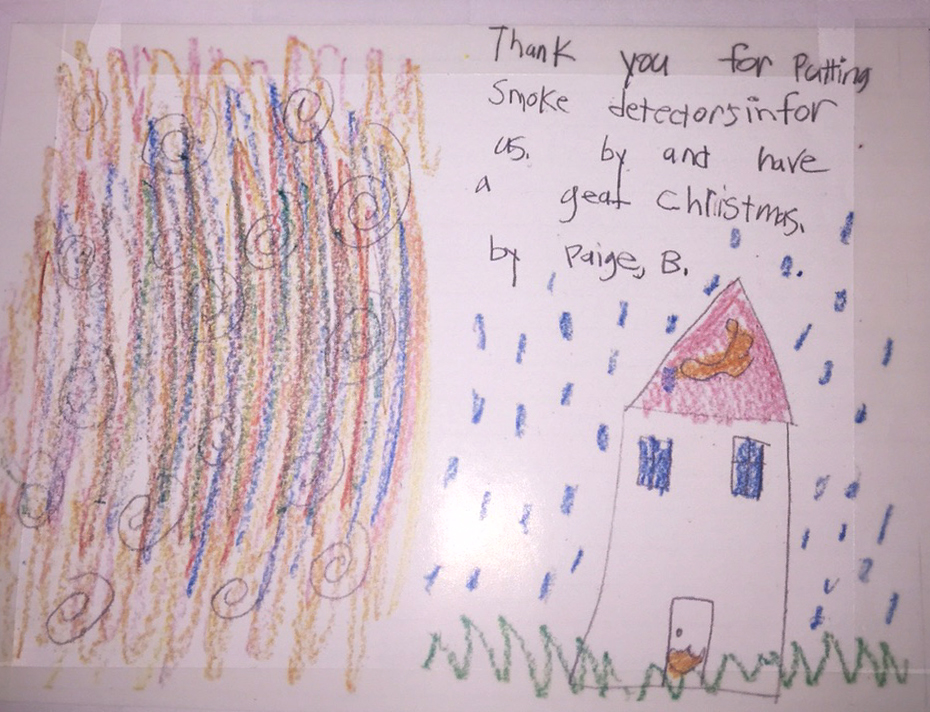 Thank you for Putting
Smoke detectors in for
us. by and have
a geat Chriistmas.
by Paige, B.